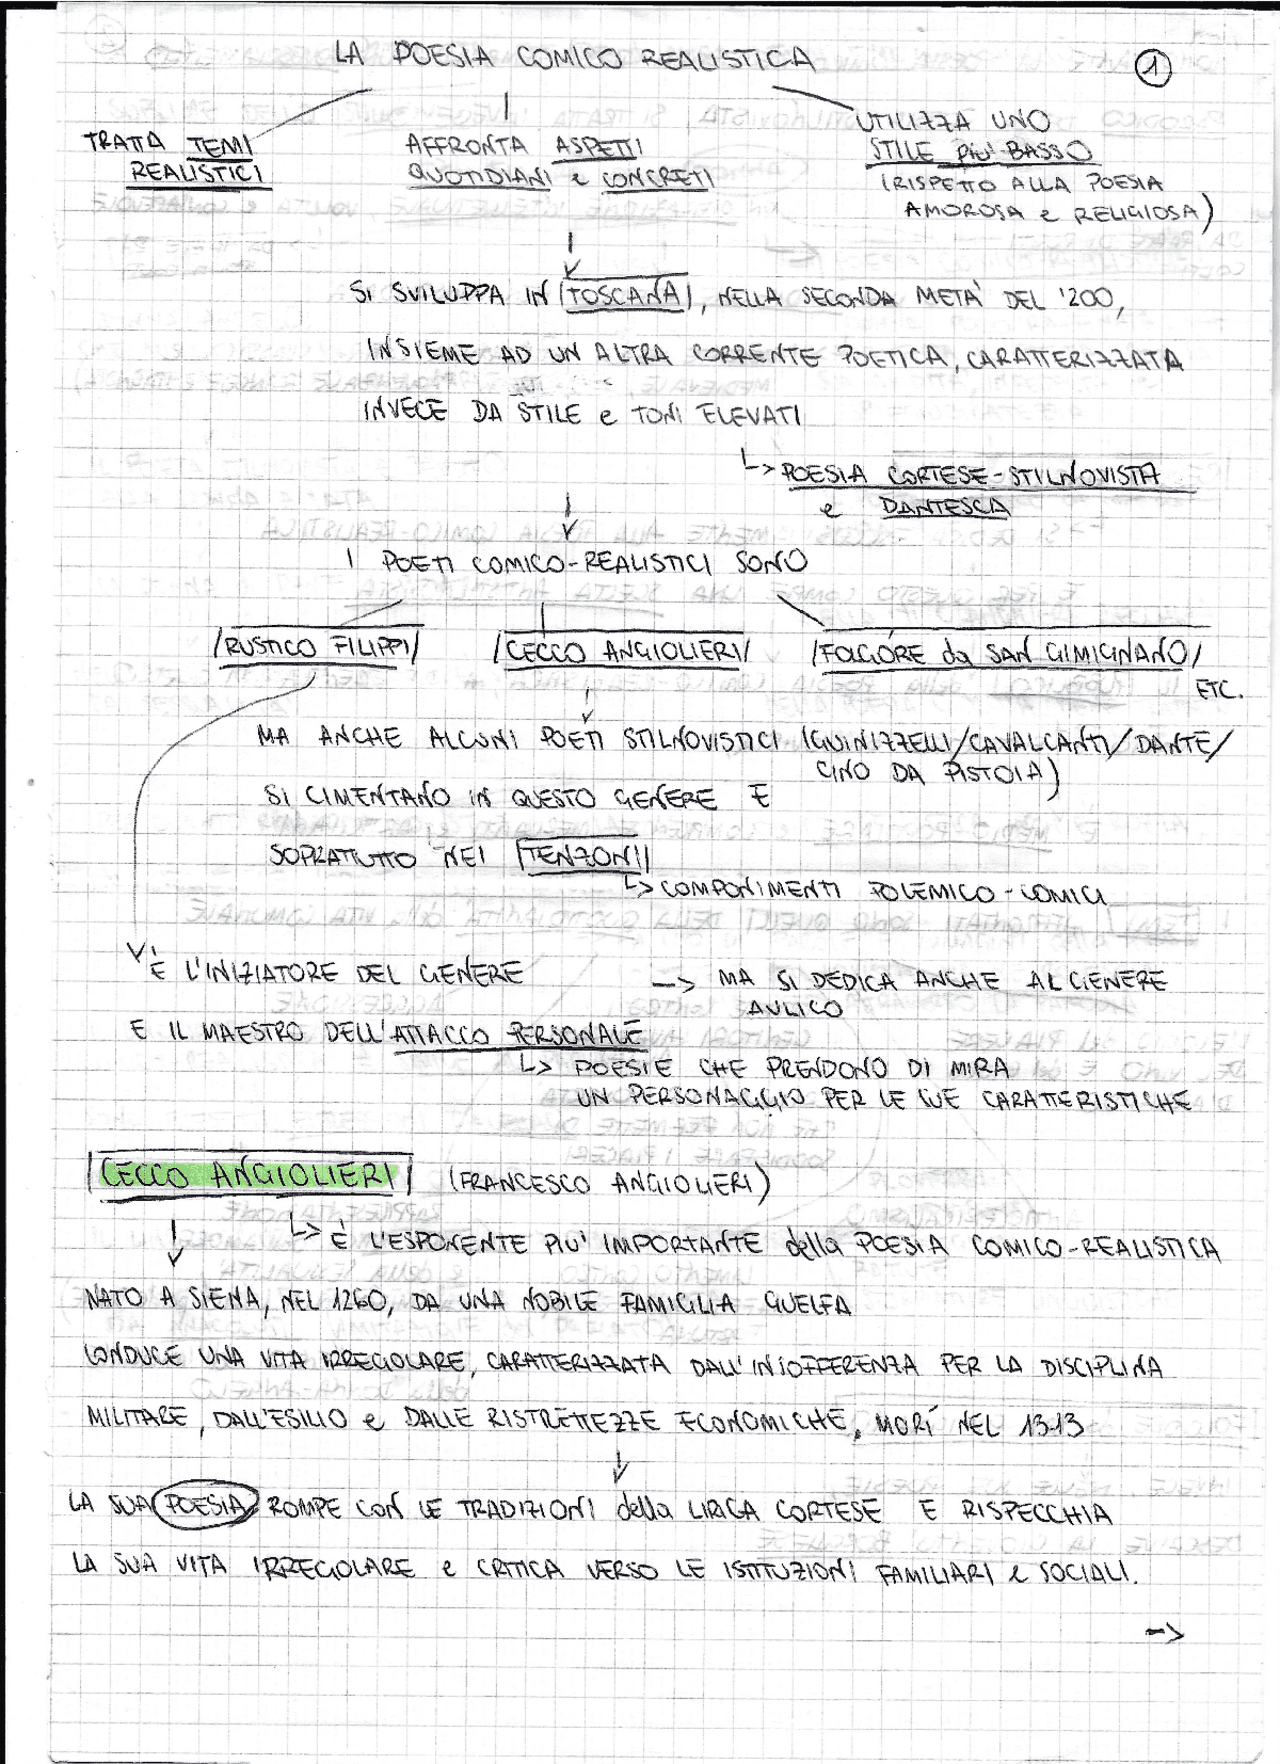 LA POESIA COMICO REALISTICA
1
TRATTA TEMI
REALISTICI
AFFRONTA ASPETTI
QUOTIDIANI e CONCRETI
UTILIZZA UNO
STILE PIU' BASSO
(RISPETTO ALLA POESIA
AMOROSA e RELIGIOSA)
SI SVILUPPA IN TOSCANA, NELLA SECONDA METÀ DEL '200,
INSIEME AD UN ALTRA CORRENTE POETICA, CARATTERIZZATA
INVECE DA STILE e TONI ELEVATI
↳ POESIA CORTESE-STILNOVISTA
e DANTESCA
I POETI COMICO-REALISTICI SONO
RUSTICO FILIPPI
CECCO ANGIOLIERI
FOLGÓRE da SAN GIMIGNANO
ETC.
MA ANCHE ALCUNI POETI STILNOVISTICI (GUINIZZELLI/CAVALCANTI/DANTE/
CINO DA PISTOIA)
SI CIMENTANO IN QUESTO GENERE E
SOPRATTUTTO NEI TENZONI
↳ COMPONIMENTI POLEMICO-COMICI
È L'INIZIATORE DEL GENERE
-> MA SI DEDICA ANCHE AL GENERE
AULICO
E IL MAESTRO DELL'ATTACCO PERSONALE
↳ POESIE CHE PRENDONO DI MIRA
UN PERSONAGGIO PER LE SUE CARATTERISTICHE
CECCO ANGIOLIERI (FRANCESCO ANGIOLIERI)
↳ È L'ESPONENTE PIU' IMPORTANTE della POESIA COMICO-REALISTICA
NATO A SIENA, NEL 1260, DA UNA NOBILE FAMIGLIA GUELFA
CONDUCE UNA VITA IRREGOLARE, CARATTERIZZATA DALL'INSOFFERENZA PER LA DISCIPLINA
MILITARE, DALL'ESILIO e DALLE RISTRETTEZZE ECONOMICHE, MORÍ NEL 1313
LA SUA POESIA ROMPE CON LE TRADIZIONI della LIRICA CORTESE E RISPECCHIA
LA SUA VITA IRREGOLARE e CRITICA VERSO LE ISTITUZIONI FAMILIARI e SOCIALI.
->